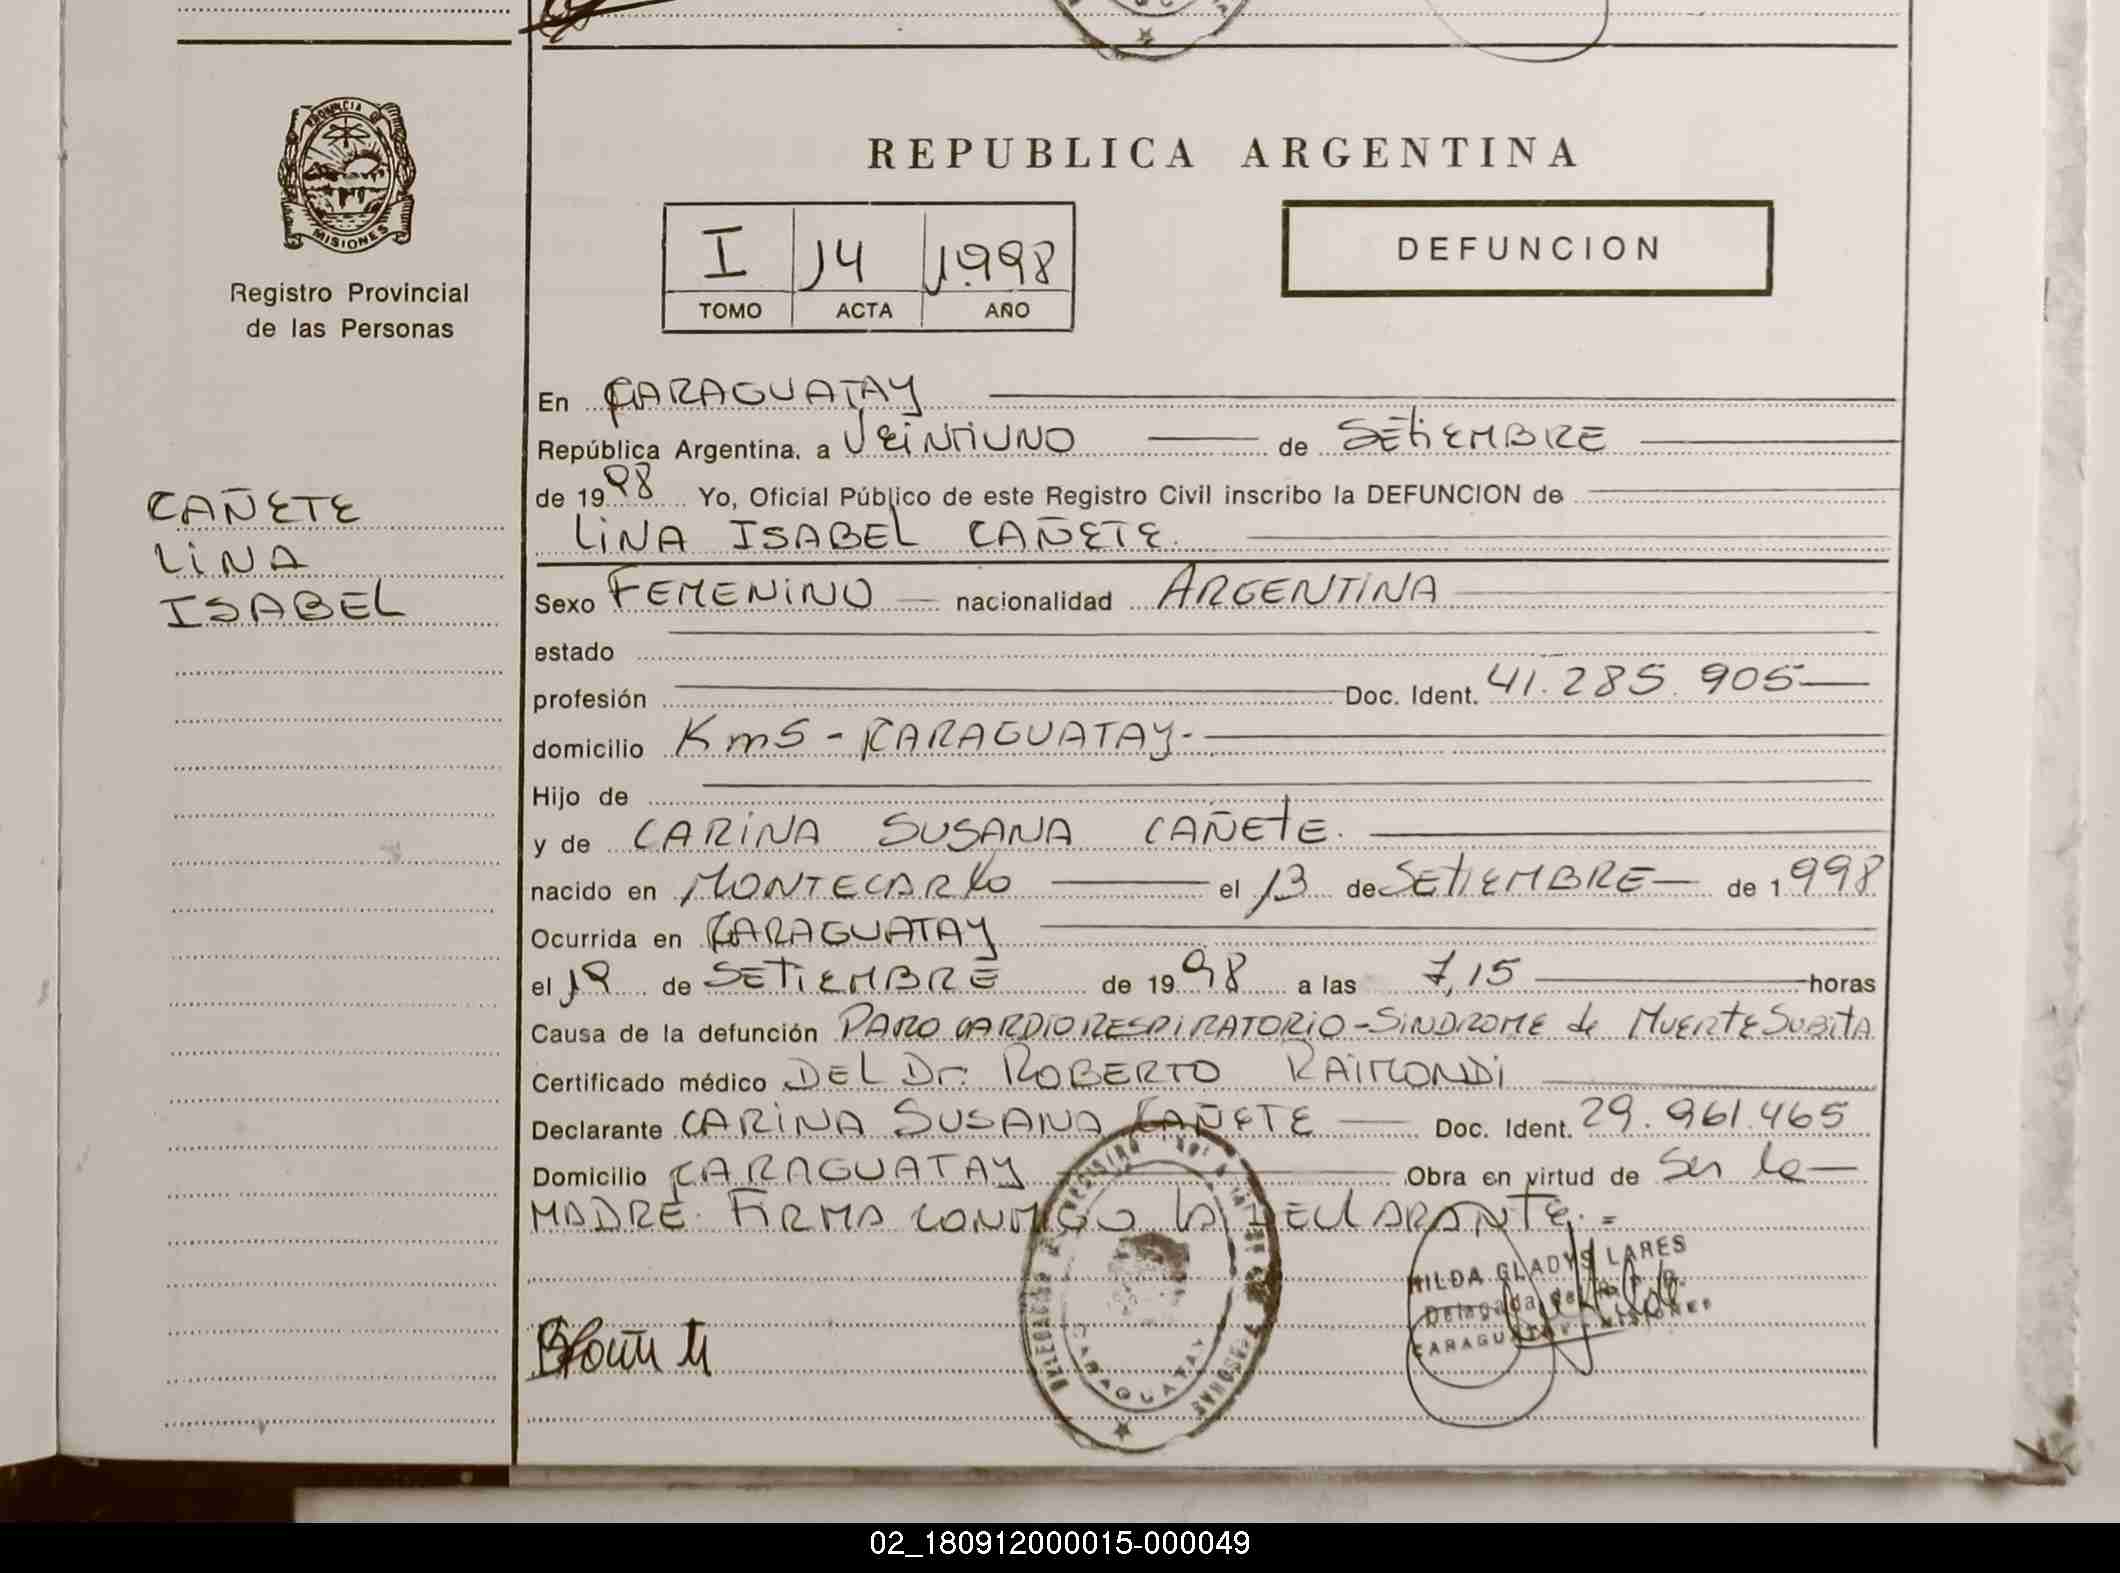 PROVINCIA DE
MISIONES
Registro Provincial
de las Personas
REPUBLICA ARGENTINA
I 14 1.998
TOMO ACTA AÑO
DEFUNCION
En CARAGUATAY
República Argentina, a VEINTIUNO de SETIEMBRE
de 1998 Yo, Oficial Público de este Registro Civil inscribo la DEFUNCION de
LINA ISABEL CAÑETE.
CAÑETE
LINA
ISABEL
Sexo FEMENINO nacionalidad ARGENTINA
estado
profesión Doc. Ident. 41.285.905
domicilio Km5 - CARAGUATAY-
Hijo de
y de CARINA SUSANA CAÑETE.
nacido en MONTECARLO el 13 de SETIEMBRE de 1998
Ocurrida en CARAGUATAY
el 19 de SETIEMBRE de 1998 a las 7,15 horas
Causa de la defunción PARO CARDIORESPIRATORIO-SINDROME de MUERTE SUBITA
Certificado médico DEL Dr. ROBERTO RAIMONDI
Declarante CARINA SUSANA CAÑETE Doc. Ident. 29.961.465
Domicilio CARAGUATAY Obra en virtud de Ser la
MADRE. FIRMA CONMIGO LA DECLARANTE.=
HILDA GLADYS LARES
Delegada del R. P. P.
CARAGUATAY - MISIONES
CARAGUATAY
02_180912000015-000049